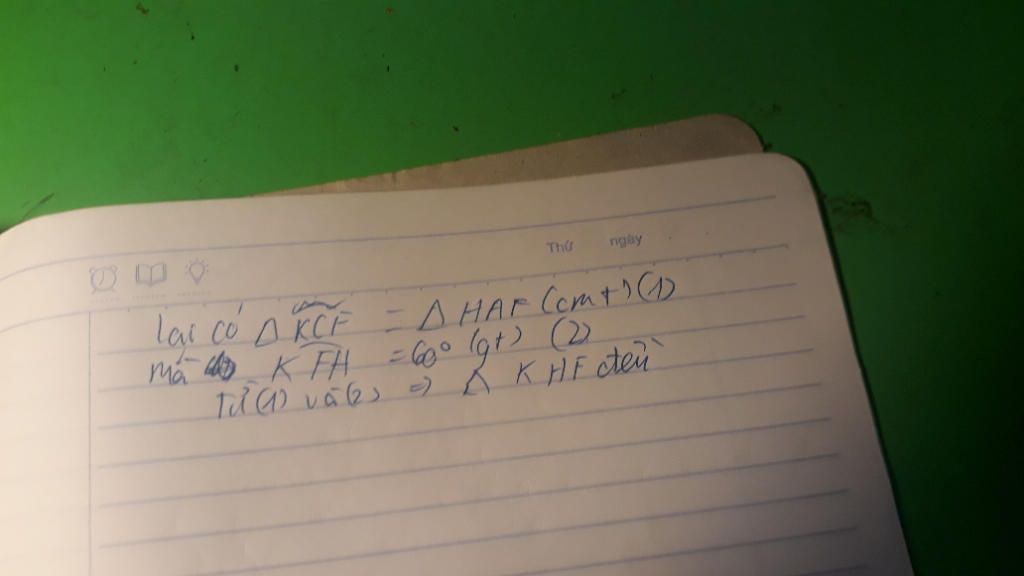 Thứ ngày
lại có Δ KCF = Δ HAF (cmt) (1)
mà KFH = 60° (gt) (2)
Từ (1) và (2) => Δ KHF đều